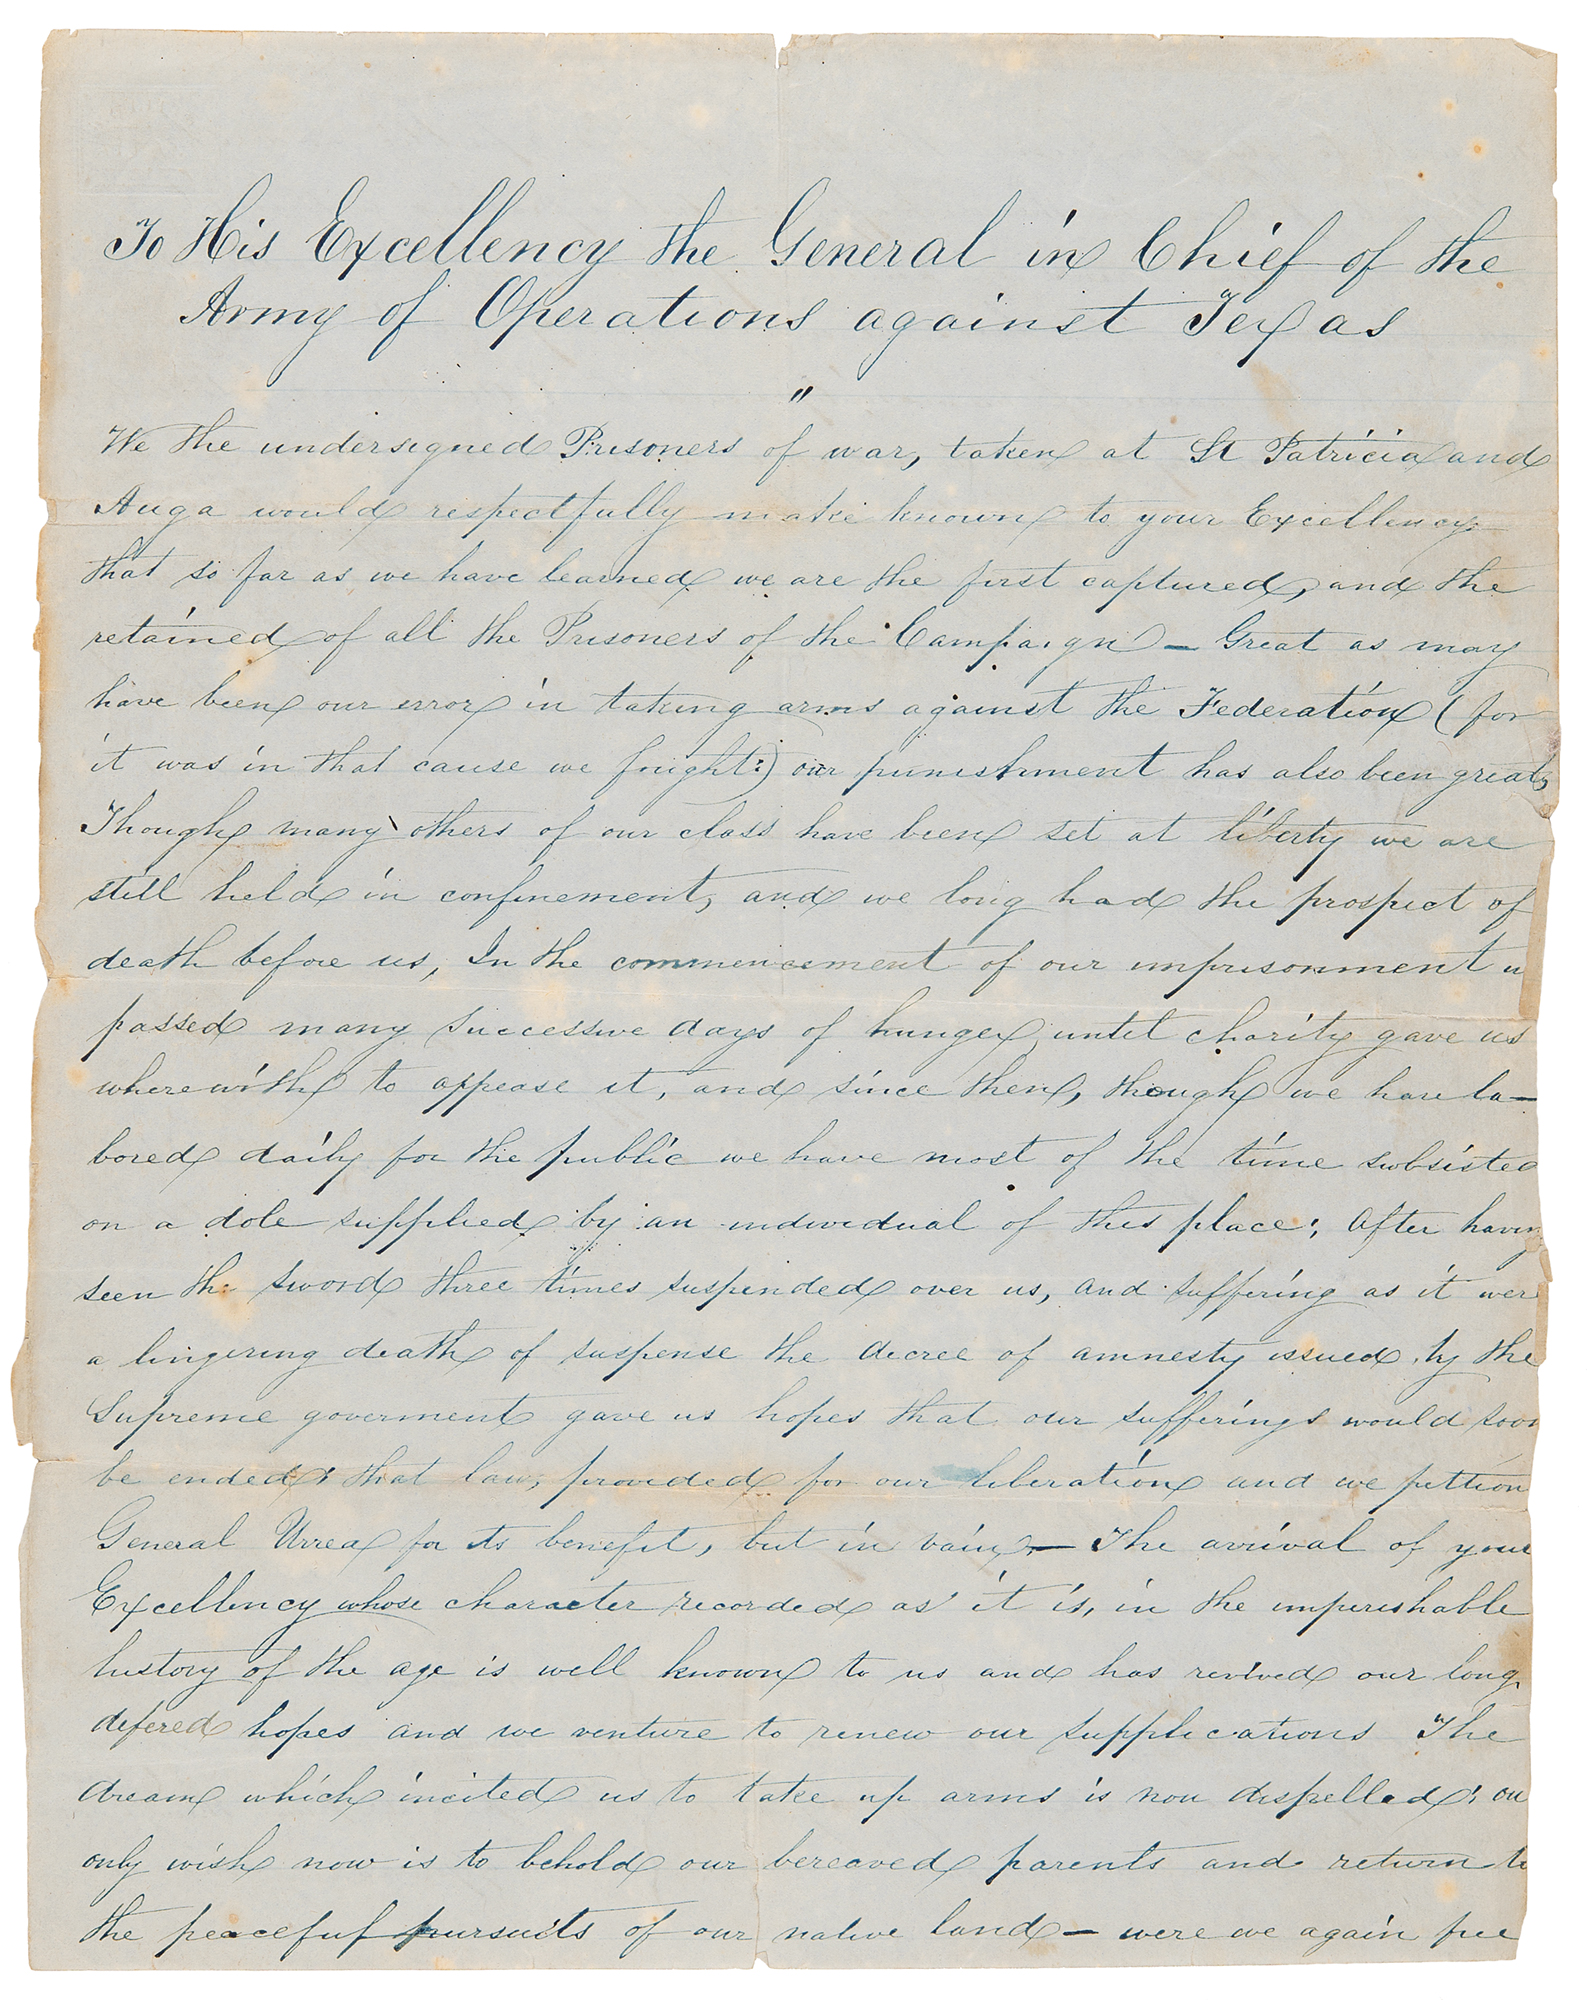 To His Excellency the General in Chief of the
Army of Operations against Texas
"
We the undersigned Prisoners of war, taken at St Patricia and
Auga would respectfully make known to your Excellency
that so far as we have learned we are the first captured, and the
retained of all the Prisoners of the Campaign — Great as may
have been our error in taking arms against the Federation (for
it was in that cause we fought:) our punishment has also been great,
Though many others of our class have been set at liberty we are
still held in confinement, and we long had the prospect of
death before us, In the commencement of our imprisonment
passed many successive days of hunger until charity gave us
wherewith to appease it, and since then, though we have la—
bored daily for the public we have most of the time subsisted
on a dole supplied by an individual of this place; After having
seen the sword three times suspended over us, and suffering as it were
a lingering death of suspense the decree of amnesty issued by the
Supreme goverment gave us hopes that our sufferings would soon
be ended; that law, provided for our liberation and we petition
General Urrea for its benefit, but in vain, — The arrival of your
Excellency whose character recorded as it is, in the imperishable
history of the age is well known to us and has revived our long
defered hopes and we venture to renew our supplications The
dream which incited us to take up arms is now dispelled; ou
only wish now is to behold our bereaved parents and return to
the peaceful pursuits of our native land — were we again free